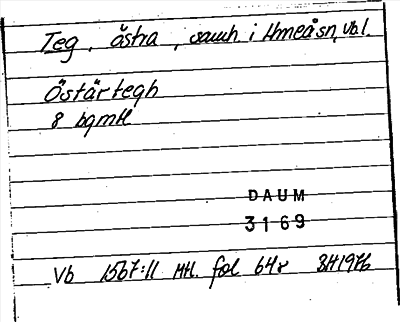 Teg, östra, samh i Umeå sn, Vbl.
Östärtegh
8 bgmtl
DAUM
3169
Vb 1567:11 Mtl. fol 64r BH 1976